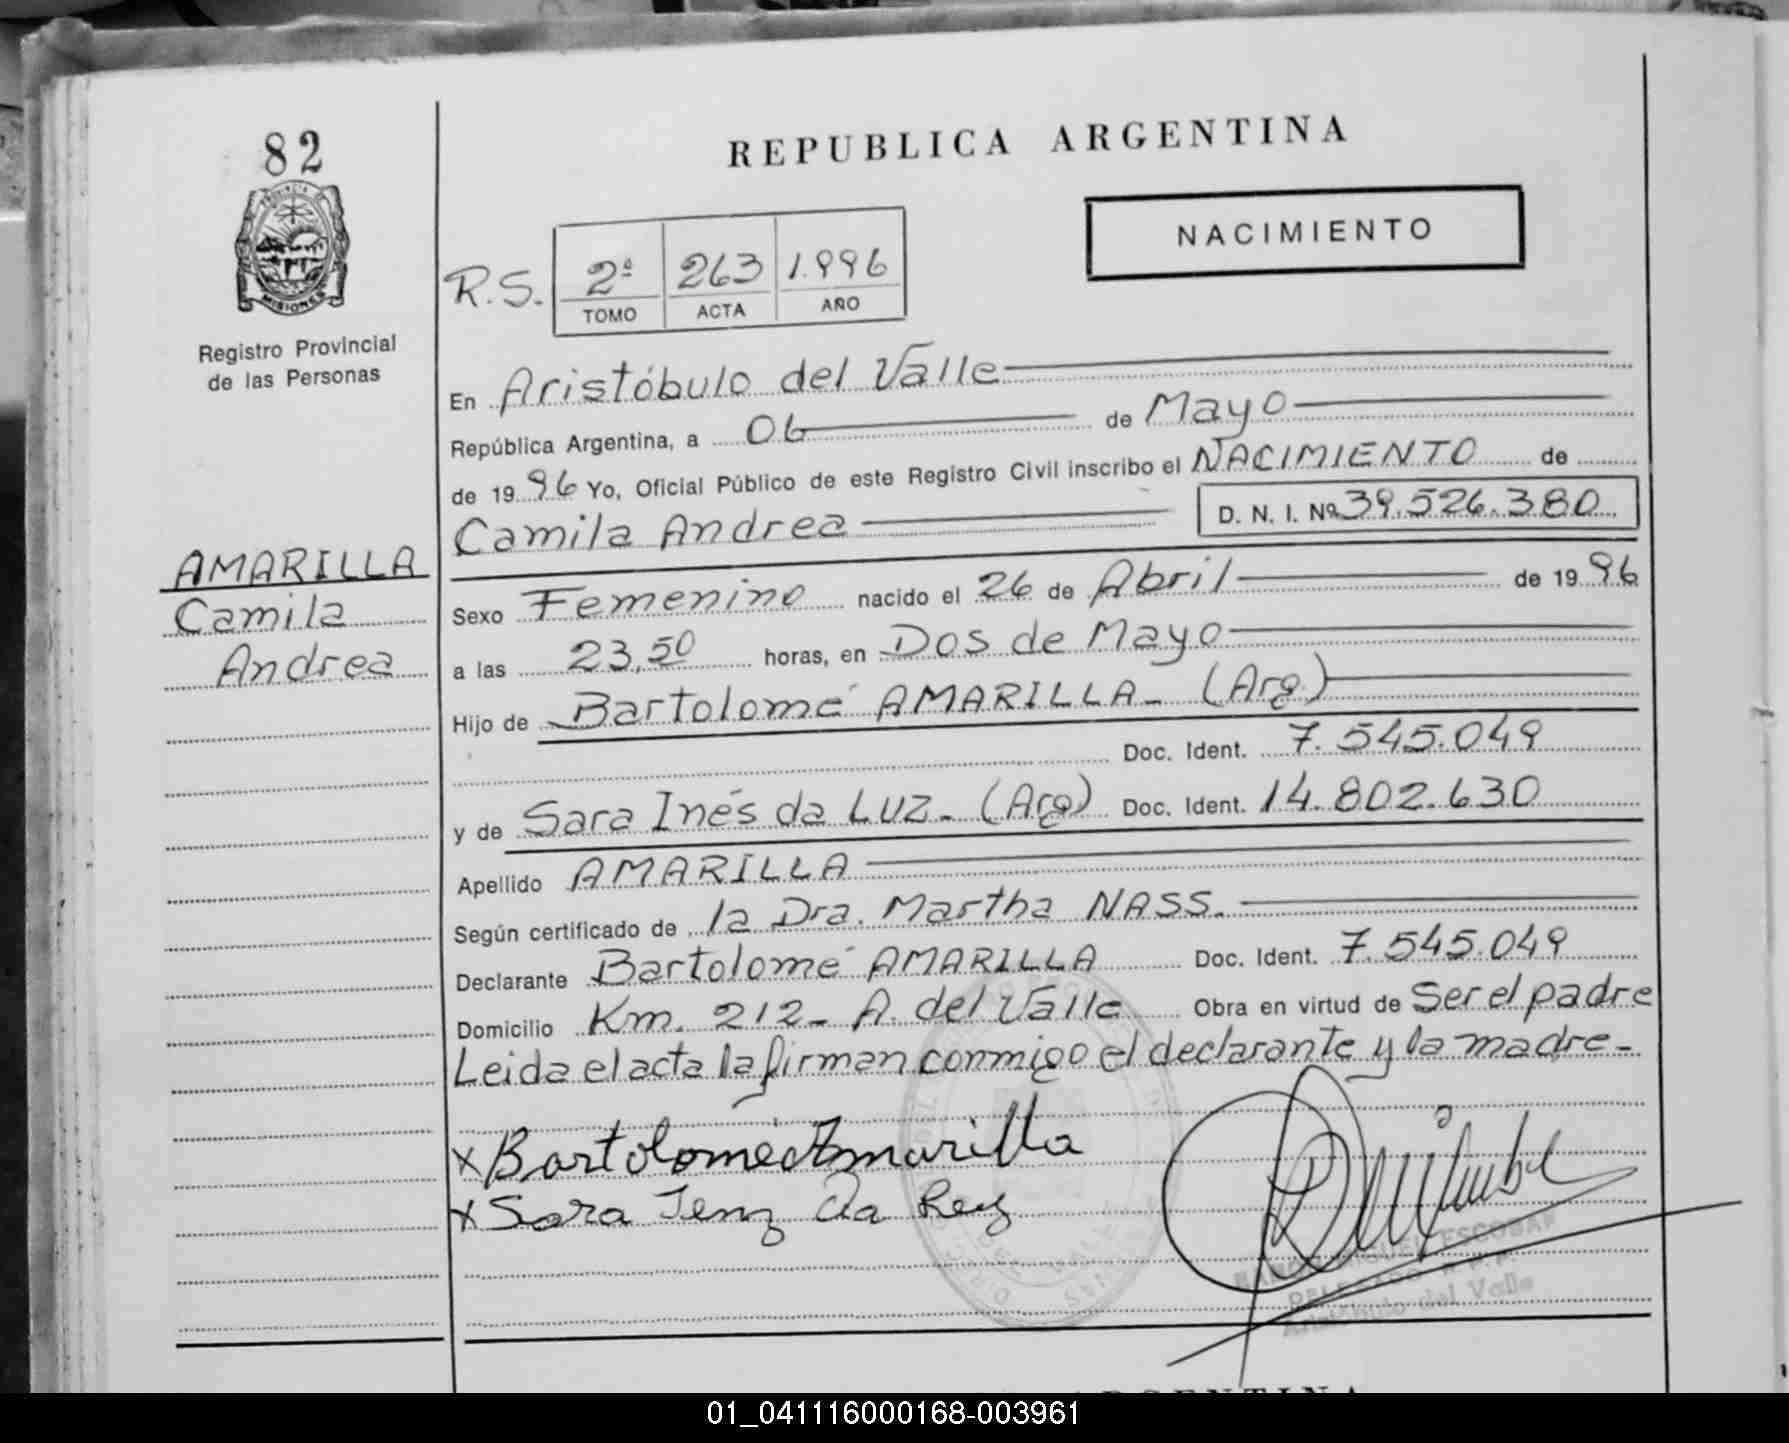 82
REPUBLICA ARGENTINA
PROVINCIA DE
MISIONES
NACIMIENTO
Registro Provincial
de las Personas
R.S. 2ª 263 1.996
TOMO ACTA AÑO
En Aristóbulo del Valle
República Argentina, a 06 de Mayo
de 1996 Yo, Oficial Público de este Registro Civil inscribo el NACIMIENTO de
Camila Andrea D. N. I. Nº 39.526.380
AMARILLA
Camila
Andrea
Sexo Femenino nacido el 26 de Abril de 1996
a las 23,50 horas, en Dos de Mayo
Hijo de Bartolomé AMARILLA- (Arg.)
Doc. Ident. 7.545.049
y de Sara Inés da Luz- (Arg) Doc. Ident. 14.802.630
Apellido AMARILLA
Según certificado de la Dra. Martha NASS.
Declarante Bartolomé AMARILLA Doc. Ident. 7.545.049
Domicilio Km. 212- A. del Valle Obra en virtud de Ser el padre
Leida el acta la firman conmigo el declarante y la madre-
x Bartolomé Amarilla
x Sara
MIGUEL ESCOBAR
Aristóbulo del Valle
ARGENTINA
01_041116000168-003961